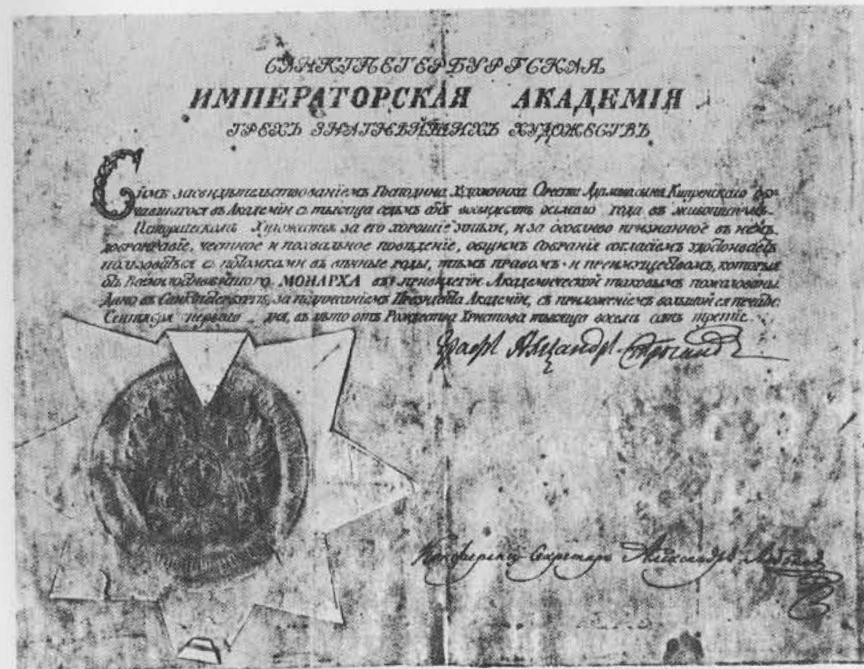 САНКТПЕТЕРБУРГСКАЯ
ИМПЕРАТОРСКАЯ АКАДЕМІЯ
ТРЕХЪ ЗНАТНѢЙШИХЪ ХУДОЖЕСТВЪ
Симъ засвидѣтельствованіемъ Господина Художника Ореста Адамовича Кипренскаго обу-
чавшагося въ Академіи с тысяща седмь сотъ восмьдесятъ осьмаго года въ живописномъ
Историческомъ Художествѣ за его хорошіе успѣхи, и за особливо признанное въ немъ
добронравіе, честное и похвальное поведеніе, общимъ Собранія согласіемъ удостоиваетъ
пользоваться с потомками въ вѣчные роды, тѣмъ правомъ и преимуществомъ, которыя
отъ МОНАРХА въ привилегіи Академической таковымъ пожалованы.
Дано въ Санктпетербургѣ, за подписаніемъ Президента Академіи, съ приложеніемъ большой ея печати:
Сентября перваго дня, въ лѣто отъ Рождества Христова тысяща восемь сотъ третіе.
Графъ Александръ Строгановъ
Конференцъ Секретарь Александръ